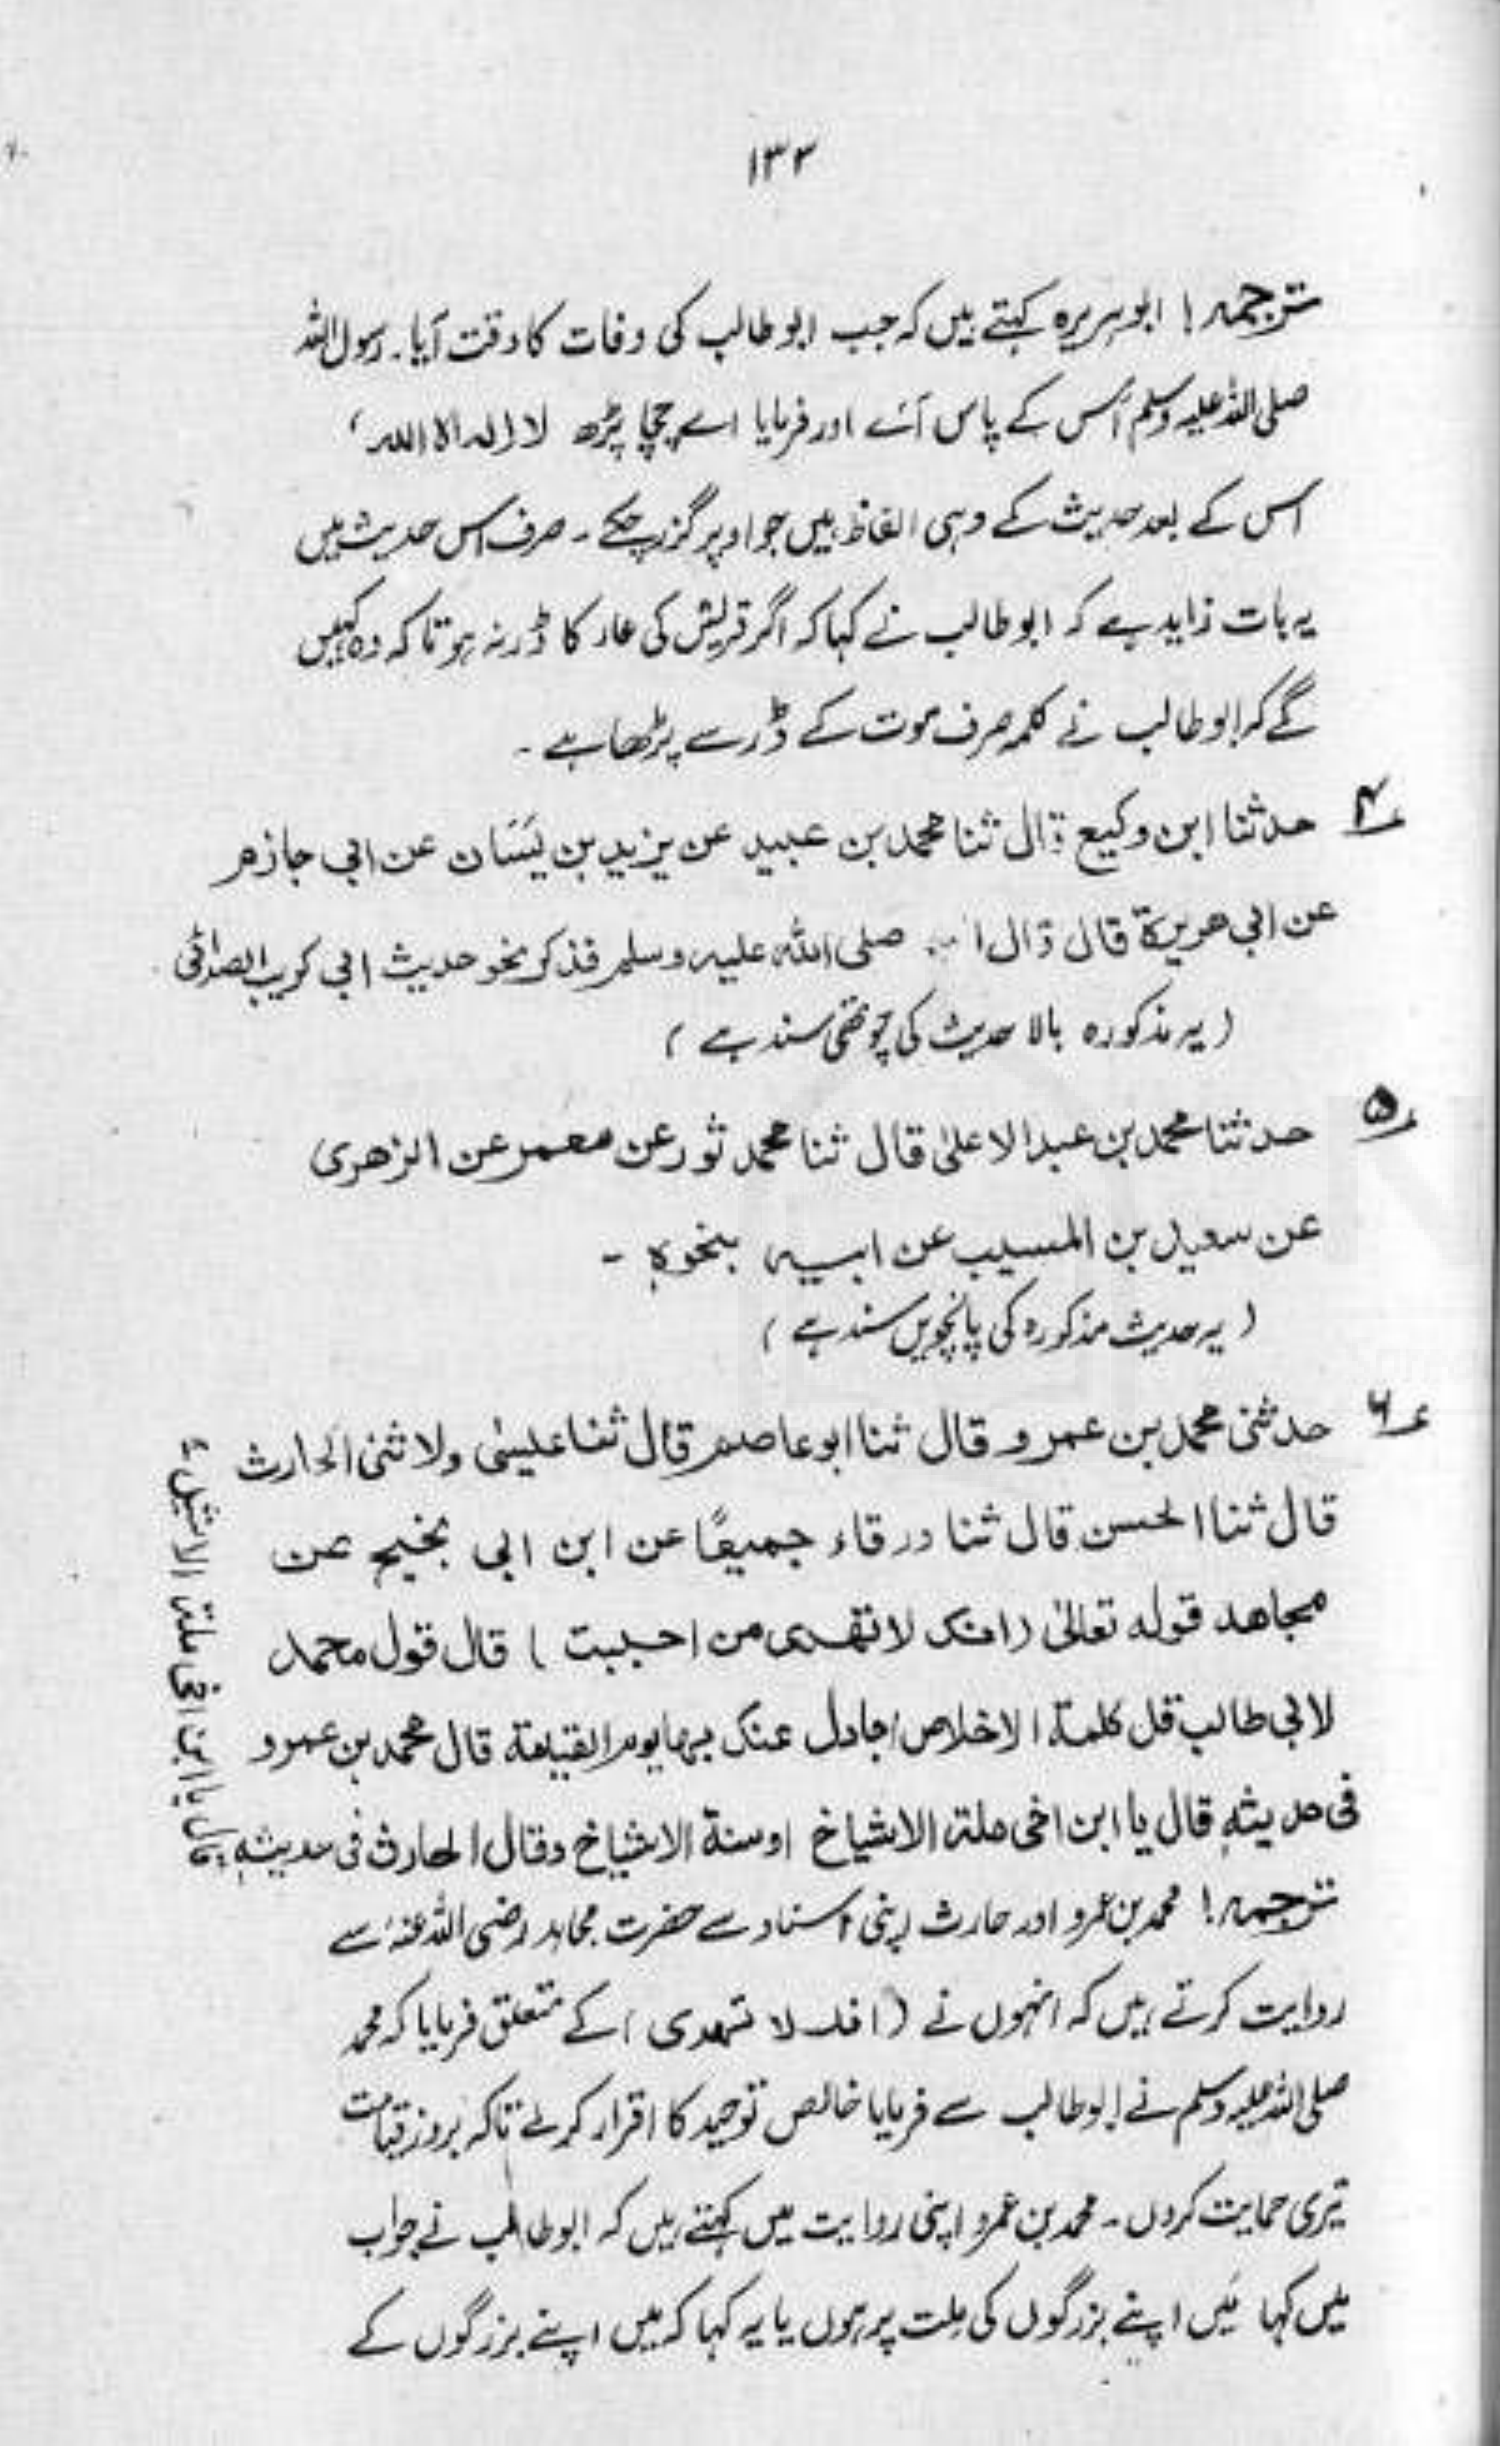 ۱۳۲
ترجمہ! ابوہریرہ کہتے ہیں کہ جب ابوطالب کی وفات کا وقت آیا۔ رسول اللہ
صلی اللہ علیہ وسلم اس کے پاس آئے اور فرمایا اے چچا پڑھ لا الہ الا اللہ،
اس کے بعد حدیث کے وہی الفاظ ہیں جو اوپر گزر چکے۔ صرف اس حدیث میں
یہ بات زاید ہے کہ ابوطالب نے کہا کہ اگر قریش کی عار کا ڈر نہ ہوتا کہ وہ کہیں
گے کہ ابوطالب نے کلمہ صرف موت کے ڈر سے پڑھا ہے۔
۴ حدثنا ابن وکیع قال ثنا محمد بن عبید عن یزید بن یَسَان عن ابی حازم
عن ابی ھریرۃ قال قال صلی اللہ علیہ وسلم فذکر نحو حدیث ابی کریب الصدائی
(یہ مذکورہ بالا حدیث کی چوتھی سند ہے)
۵ حدثنا محمد بن عبد الاعلیٰ قال ثنا محمد ثور عن معمر عن الزھری
عن سعید بن المسیب عن ابیہ بنحوہٖ -
(یہ حدیث مذکورہ کی پانچویں سند ہے)
۶ حدثنی محمد بن عمرو قال ثنا ابو عاصم قال ثنا عیسیٰ ولا ثنی الحارث
قال ثنا الحسن قال ثنا ورقاء جمیعًا عن ابن ابی نجیح عن
مجاھد قولہ تعالیٰ (انک لا تھدی من احببت) قال قول محمد
لابی طالب قل کلمۃ الاخلاص اجادل عنک بھا یوم القیمۃ قال محمد بن عمرو
فی حدیثہٖ قال یا ابن اخی ملۃ الاشیاخ اوسنۃ الاشیاخ وقال الحارث فی حدیثہٖ
قال یا ابن اخی ملۃ الاشیاخ
ترجمہ! محمد بن عمرو اور حارث اپنی اسناد سے حضرت مجاہد رضی اللہ عنہ سے
روایت کرتے ہیں کہ انہوں نے (انک لا تھدی) کے متعلق فرمایا کہ محمد
صلی اللہ علیہ وسلم نے ابوطالب سے فرمایا خالص توحید کا اقرار کر لے تاکہ بروز قیامت
تیری حمایت کروں۔ محمد بن عمرو اپنی روایت میں کہتے ہیں کہ ابوطالب نے جواب
میں کہا مَیں اپنے بزرگوں کی ملت پر ہوں یا یہ کہا کہ میں اپنے بزرگوں کے